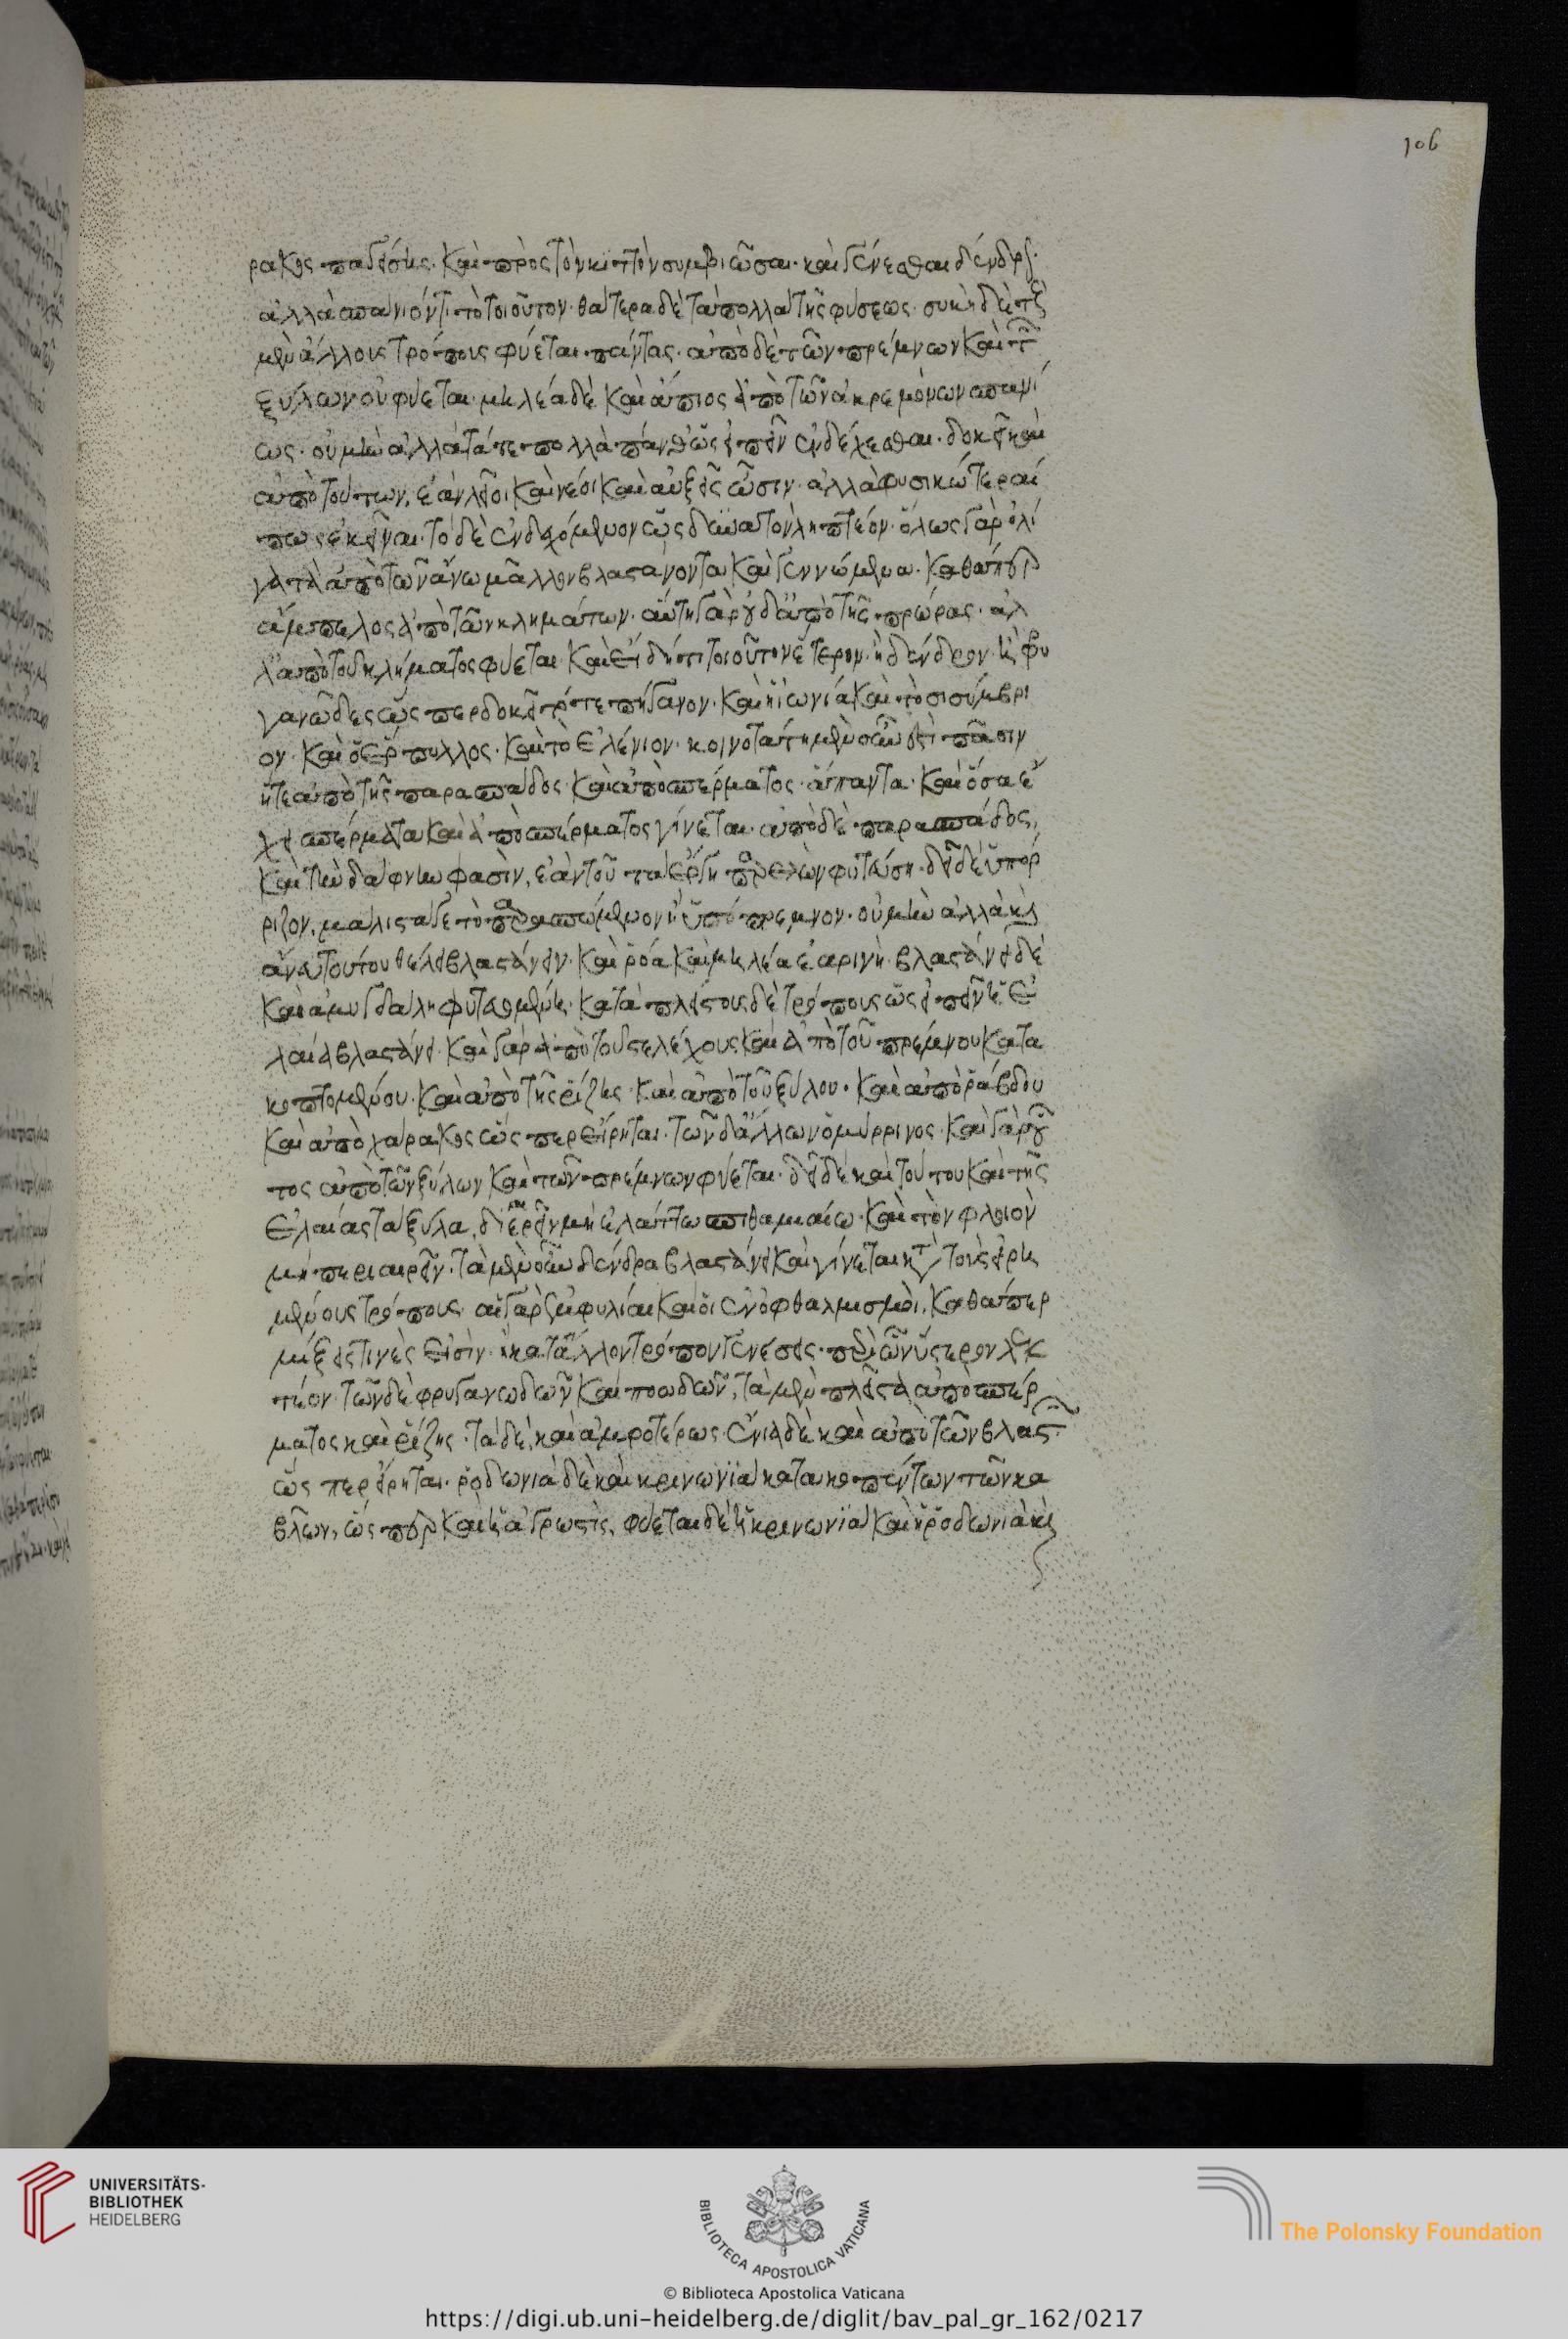 106
ρακος παγείσης· καὶ πρὸς τὸν κιττὸν συμβιῶσαι· καὶ γενέσθαι δένδρον·
ἀλλὰ σπανιόν τι τὸ τοιοῦτον· θάτερα δὲ τὰ πολλὰ τῆς φύσεως· συκῆ δὲ τοὺς
μὲν ἄλλους τρόπους φύεται πάντας· ἀπὸ δὲ τῶν πρέμνων καὶ τῶν
ξύλων οὐ φύεται· μηλέα δὲ καὶ ἄπιος ἀπὸ τῶν ἀκρεμόνων σπανί
ως· οὐ μὴν ἀλλὰ τά τε πολλὰ πάνθ' ὡς εἰπεῖν ἐνδέχεσθαι· δοκεῖ καὶ
ἀπὸ τούτων, ἐὰν λεῖοι καὶ νέοι καὶ αὐξεῖς ὦσιν· ἀλλὰ φυσικώτεραί
πως ἐκεῖναι· τὸ δὲ ἐνδεχόμενον ὡς δυνατὸν ληπτέον· ὅλως γὰρ ὀλί
γα τὰ ἀπὸ τῶν ἄνω μᾶλλον βλαστάνοντα καὶ γεννώμενα· καθάπερ
ἄμπελος ἀπὸ τῶν κλημάτων· αὕτη γὰρ οὐδ' ἀπὸ τῆς πρώρας· ἀλ
λ' ἀπὸ τοῦ κλήματος φύεται· καὶ εἰ δή τι τοιοῦτον ἕτερον· ἢ δένδρον· ἢ φρυ
γανῶδες ὥσπερ δοκεῖ τό τε πήγανον· καὶ ἡ ἰωνιά καὶ τὸ σισύμβρι
ον· καὶ ὁ ἕρπυλλος· καὶ τὸ ἑλένιον· κοινοτάτη μὲν οὖν ἐστὶ πᾶσιν
ἥ τε ἀπὸ τῆς παρασπάδος· καὶ ἀπὸ σπέρματος· ἅπαντα καὶ ὅσα ἔ
χει σπέρματα καὶ ἀπὸ σπέρματος γίνεται· ἀπὸ δὲ παρασπάδος,
καὶ τὴν δάφνην φασὶν, ἐάν του τὰ ἔρνη παρελὼν φυτεύσῃ· δεῖ δὲ ὑπόρ
ριζον, μάλιστα δὲ τὸ παρασπώμενον ἢ ὑπόπρεμνον· οὐ μὴν ἀλλὰ καὶ
ἄνευ τούτου θέλει βλαστάνειν· καὶ ῥόα καὶ μηλέα ἐαρινή· βλαστάνει δὲ
καὶ ἀμυγδαλῆ φυτευομένη· κατὰ πλείστους δὲ τρόπους ὡς εἰπεῖν ἡ ἐ
λαία βλαστάνει· καὶ γὰρ ἀπὸ τοῦ στελέχους καὶ ἀπὸ τοῦ πρέμνου κατα
κοπτομένου· καὶ ἀπὸ τῆς ῥίζης· καὶ ἀπὸ τοῦ ξύλου· καὶ ἀπὸ ῥάβδου
καὶ ἀπὸ χάρακος ὥσπερ εἴρηται· τῶν δ' ἄλλων ὁ μύρρινος· καὶ γὰρ οὗ
τος ἀπὸ τῶν ξύλων καὶ τῶν πρέμνων φύεται· δεῖ δὲ καὶ τούτου καὶ τῆς
ἐλαίας τὰ ξύλα, διαιρεῖν μὴ ἐλάττω σπιθαμιαίω· καὶ τὸν φλοιὸν
μὴ περιαιρεῖν· τὰ μὲν οὖν δένδρα βλαστάνει καὶ γίνεται κατὰ τοὺς εἰρη
μένους τρόπους· αἱ γὰρ ἐμφυλίαι καὶ οἱ ἐνοφθαλμισμοὶ, καθάπερ
μίξεις τινὲς εἰσὶν· ἢ κατ' ἄλλον τρόπον γενέσεις· περὶ ὧν ὕστερον λεκ
τέον· τῶν δὲ φρυγανωδῶν καὶ ποωδῶν, τὰ μὲν πλεῖστα ἀπὸ σπέρ
ματος καὶ ῥίζης· τὰ δὲ, καὶ ἀμφοτέρως· ἔνια δὲ καὶ ἀπὸ τῶν βλαστῶν·
ὥσπερ εἴρηται· ῥοδωνιὰ δὲ καὶ κρινωνϊὰ κατακοπέντων τῶν κα
βλῶν, ὥσπερ καὶ ἡ ἄγρωστις, φύεται δὲ ἡ κρινωνϊὰ καὶ ἡ ῥοδωνιὰ καὶ
UNIVERSITÄTS-
BIBLIOTHEK
HEIDELBERG
BIBLIOTECA APOSTOLICA VATICANA
The Polonsky Foundation
© Biblioteca Apostolica Vaticana
https://digi.ub.uni-heidelberg.de/diglit/bav_pal_gr_162/0217